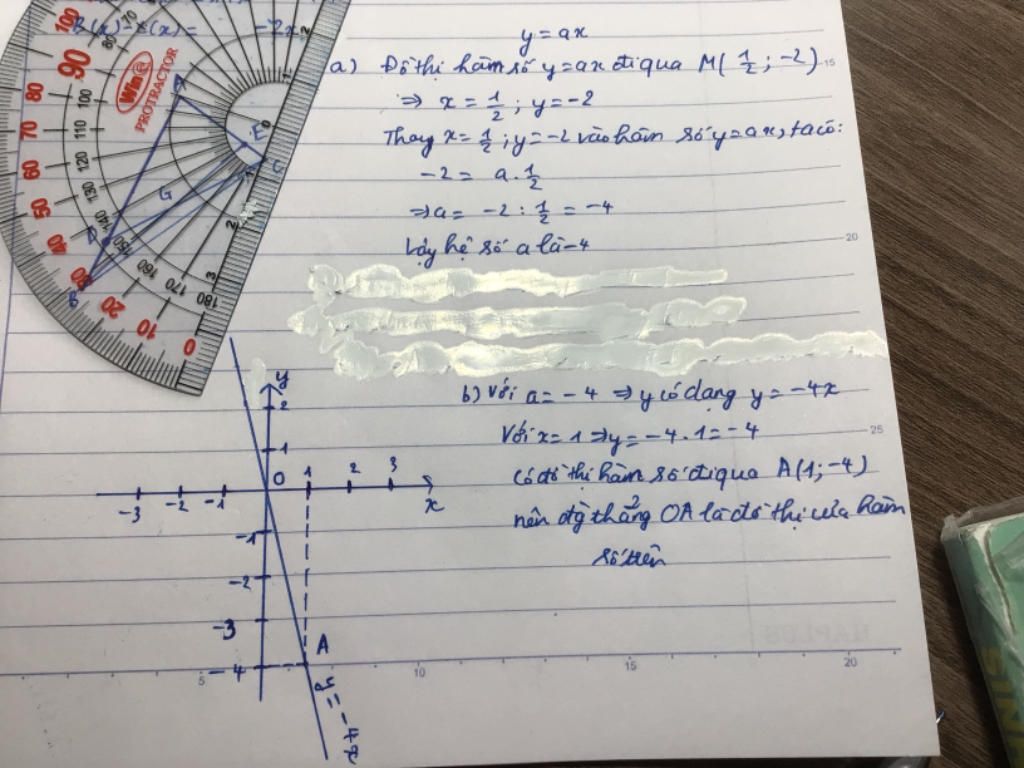 B(x)-C(x)= -2x
y=ax
a) Đồ thị hàm số y=ax đi qua M(1/2; -2)
⇒ x = 1/2; y=-2
Thay x=1/2; y=-2 vào hàm số y=ax, ta có:
-2= a.1/2
⇒a= -2:1/2 = -4
Vậy hệ số a là -4
b) Với a= -4 ⇒ y có dạng y= -4x
Với x=1 ⇒y= -4.1= -4
Có đồ thị hàm số đi qua A(1;-4)
nên đg thẳng OA là đồ thị của hàm
số trên
y
2
1
O 1 2 3
-3 -2 -1 x
-1
-2
-3
-4 A
y= -4x
WinQ
PROTRACTOR
100 90 80 70 60 50 40 30 20 10 0
70 80 90 100 110 120 130 140 150 160 170 180
1 0 1 2 3
E C G B
15
20
25
5 10 15 20
HAPLUS
SINA